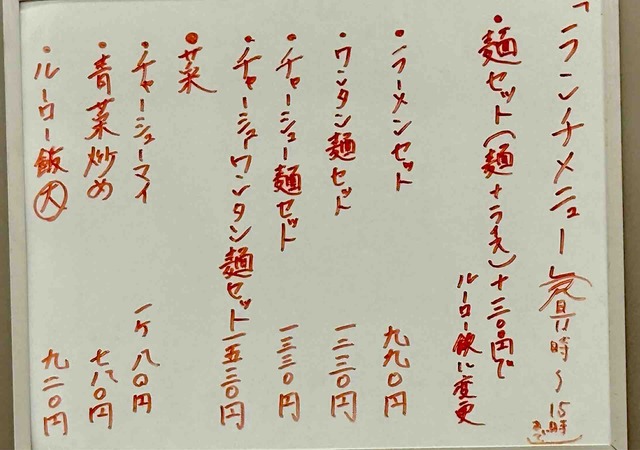 「ランチメニュー」 昼11時〜15時まで
・麺セット(麺+ライス)+三〇〇円で
ルーロー飯に変更
・ラーメンセット 九九〇円
・ワンタン麺セット 一二三〇円
・チャーシュー麺セット 一三三〇円
・チャーシューワンタン麺セット 一五三〇円
・菜
・チャーシューマイ 一ケ 八〇円
・青菜炒め 七八〇円
・ルーロー飯 大 九二〇円